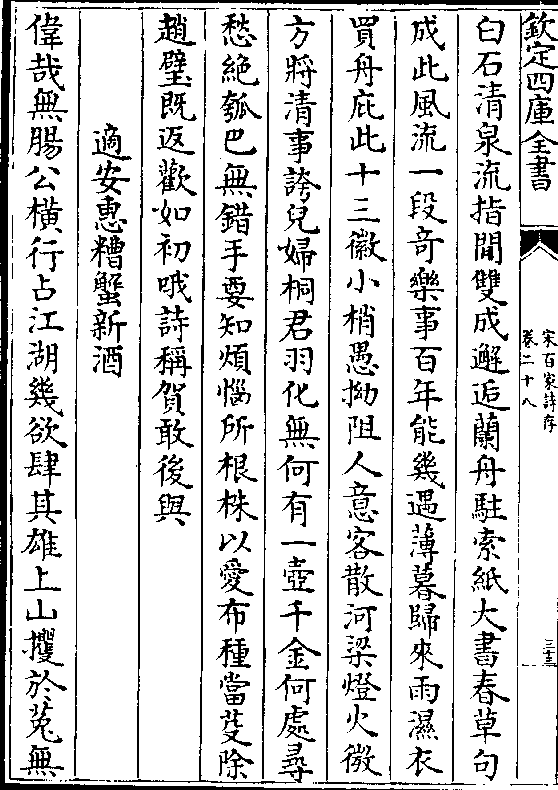 欽定四庫全書
宋百家詩存
卷二十八
三十三
白石清泉流指間雙成邂逅蘭舟駐索紙大書春草句
成此風流一段奇樂事百年能幾遇薄暮歸來雨濕衣
買舟庇此十三徽小梢愚拗阻人意客散河梁燈火微
方將清事誇兒婦桐君羽化無何有一壺千金何處尋
愁絶瓠巴無錯手要知煩惱所根株以愛布種當芟除
趙璧既返歡如初哦詩稱賀敢後與
適安惠糟蟹新酒
偉哉無腸公横行占江湖幾欲肆其雄上山攫於菟無